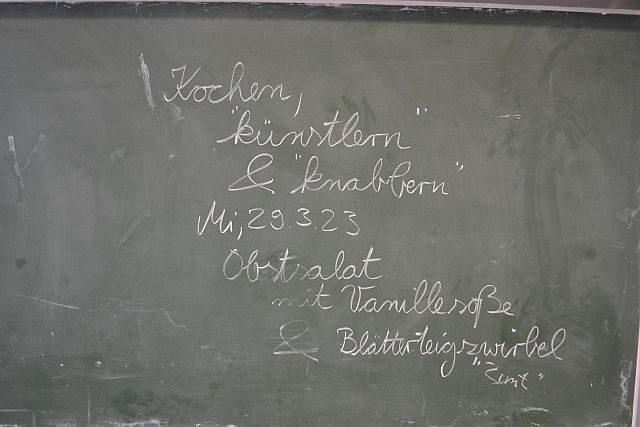 Kochen,
"künstlern"
& "knabbern"
Mi, 29.3.23
Obstsalat
mit Vanillesoße
& Blätterteigzwirbel
"Zimt"